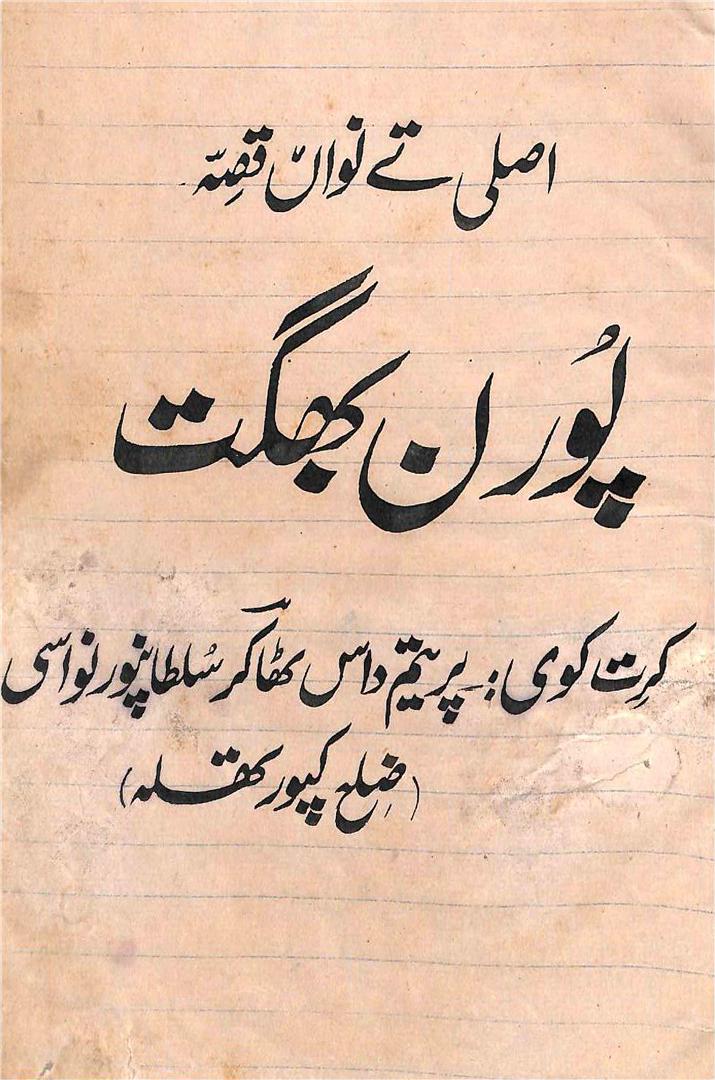 اصلی تے نواں قصِہّ
پُورن بھگت
کرِت کوی: پریتم داس ٹھاکر سُلطانپور نواسی
(ضِلع کپور تھلہ)